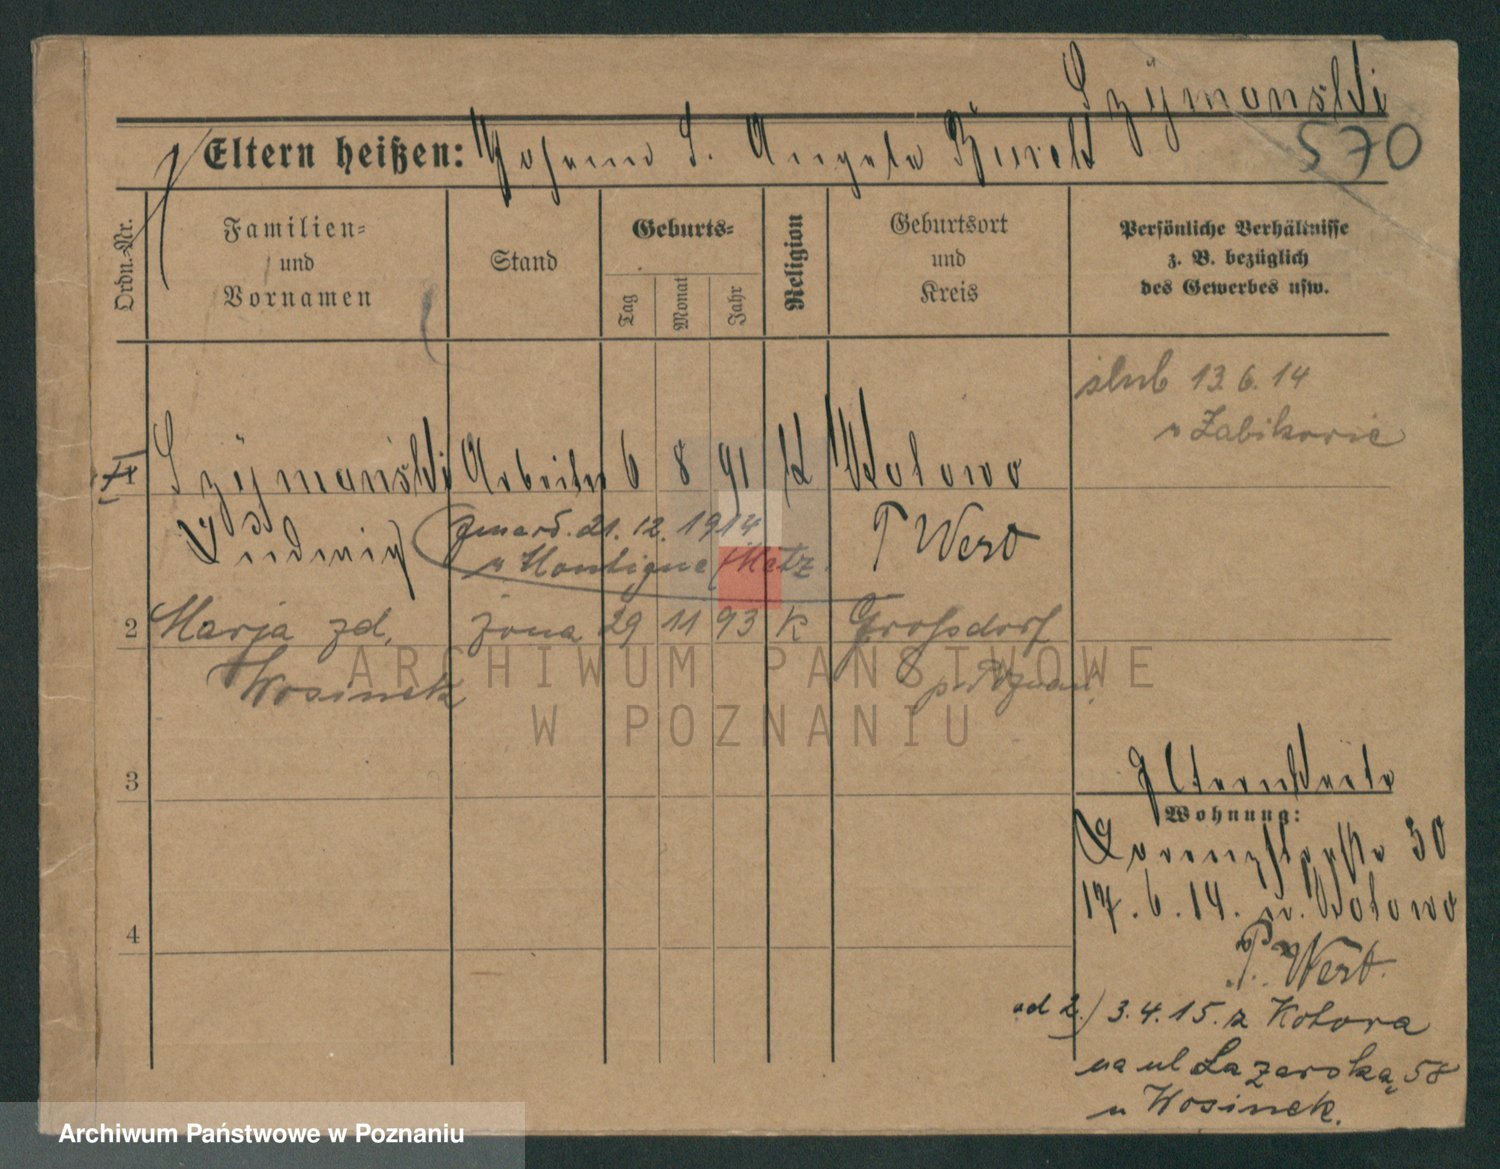 Szymanski
570
Eltern heißen: Johann S. Angela Burek
Ordn.-Nr.
Familien-
und
Vornamen
Stand
Geburts-
Tag
Monat
Jahr
Religion
Geburtsort
und
Kreis
Persönliche Verhältnisse
z. B. bezüglich
des Gewerbes usw.
ślub 13.6.14
w Żabikowie
1 Szymanski Arbeiter 6 8 91 K Kotowo
Ludwig P. West
zmarł 21.12.1914
w Montigne (Metz
2 Marja zd. żona 29 11 93 K Grossdorf
Wosinek p. Poznań
3
4
Wohnung:
30
17.6.14. n. Kotowo
P. West.
ad 2.) 3.4.15. z Kotowa
na ul Łazarską 58
u Wosinek.
ARCHIWUM PAŃSTWOWE
W POZNANIU
Archiwum Państwowe w Poznaniu